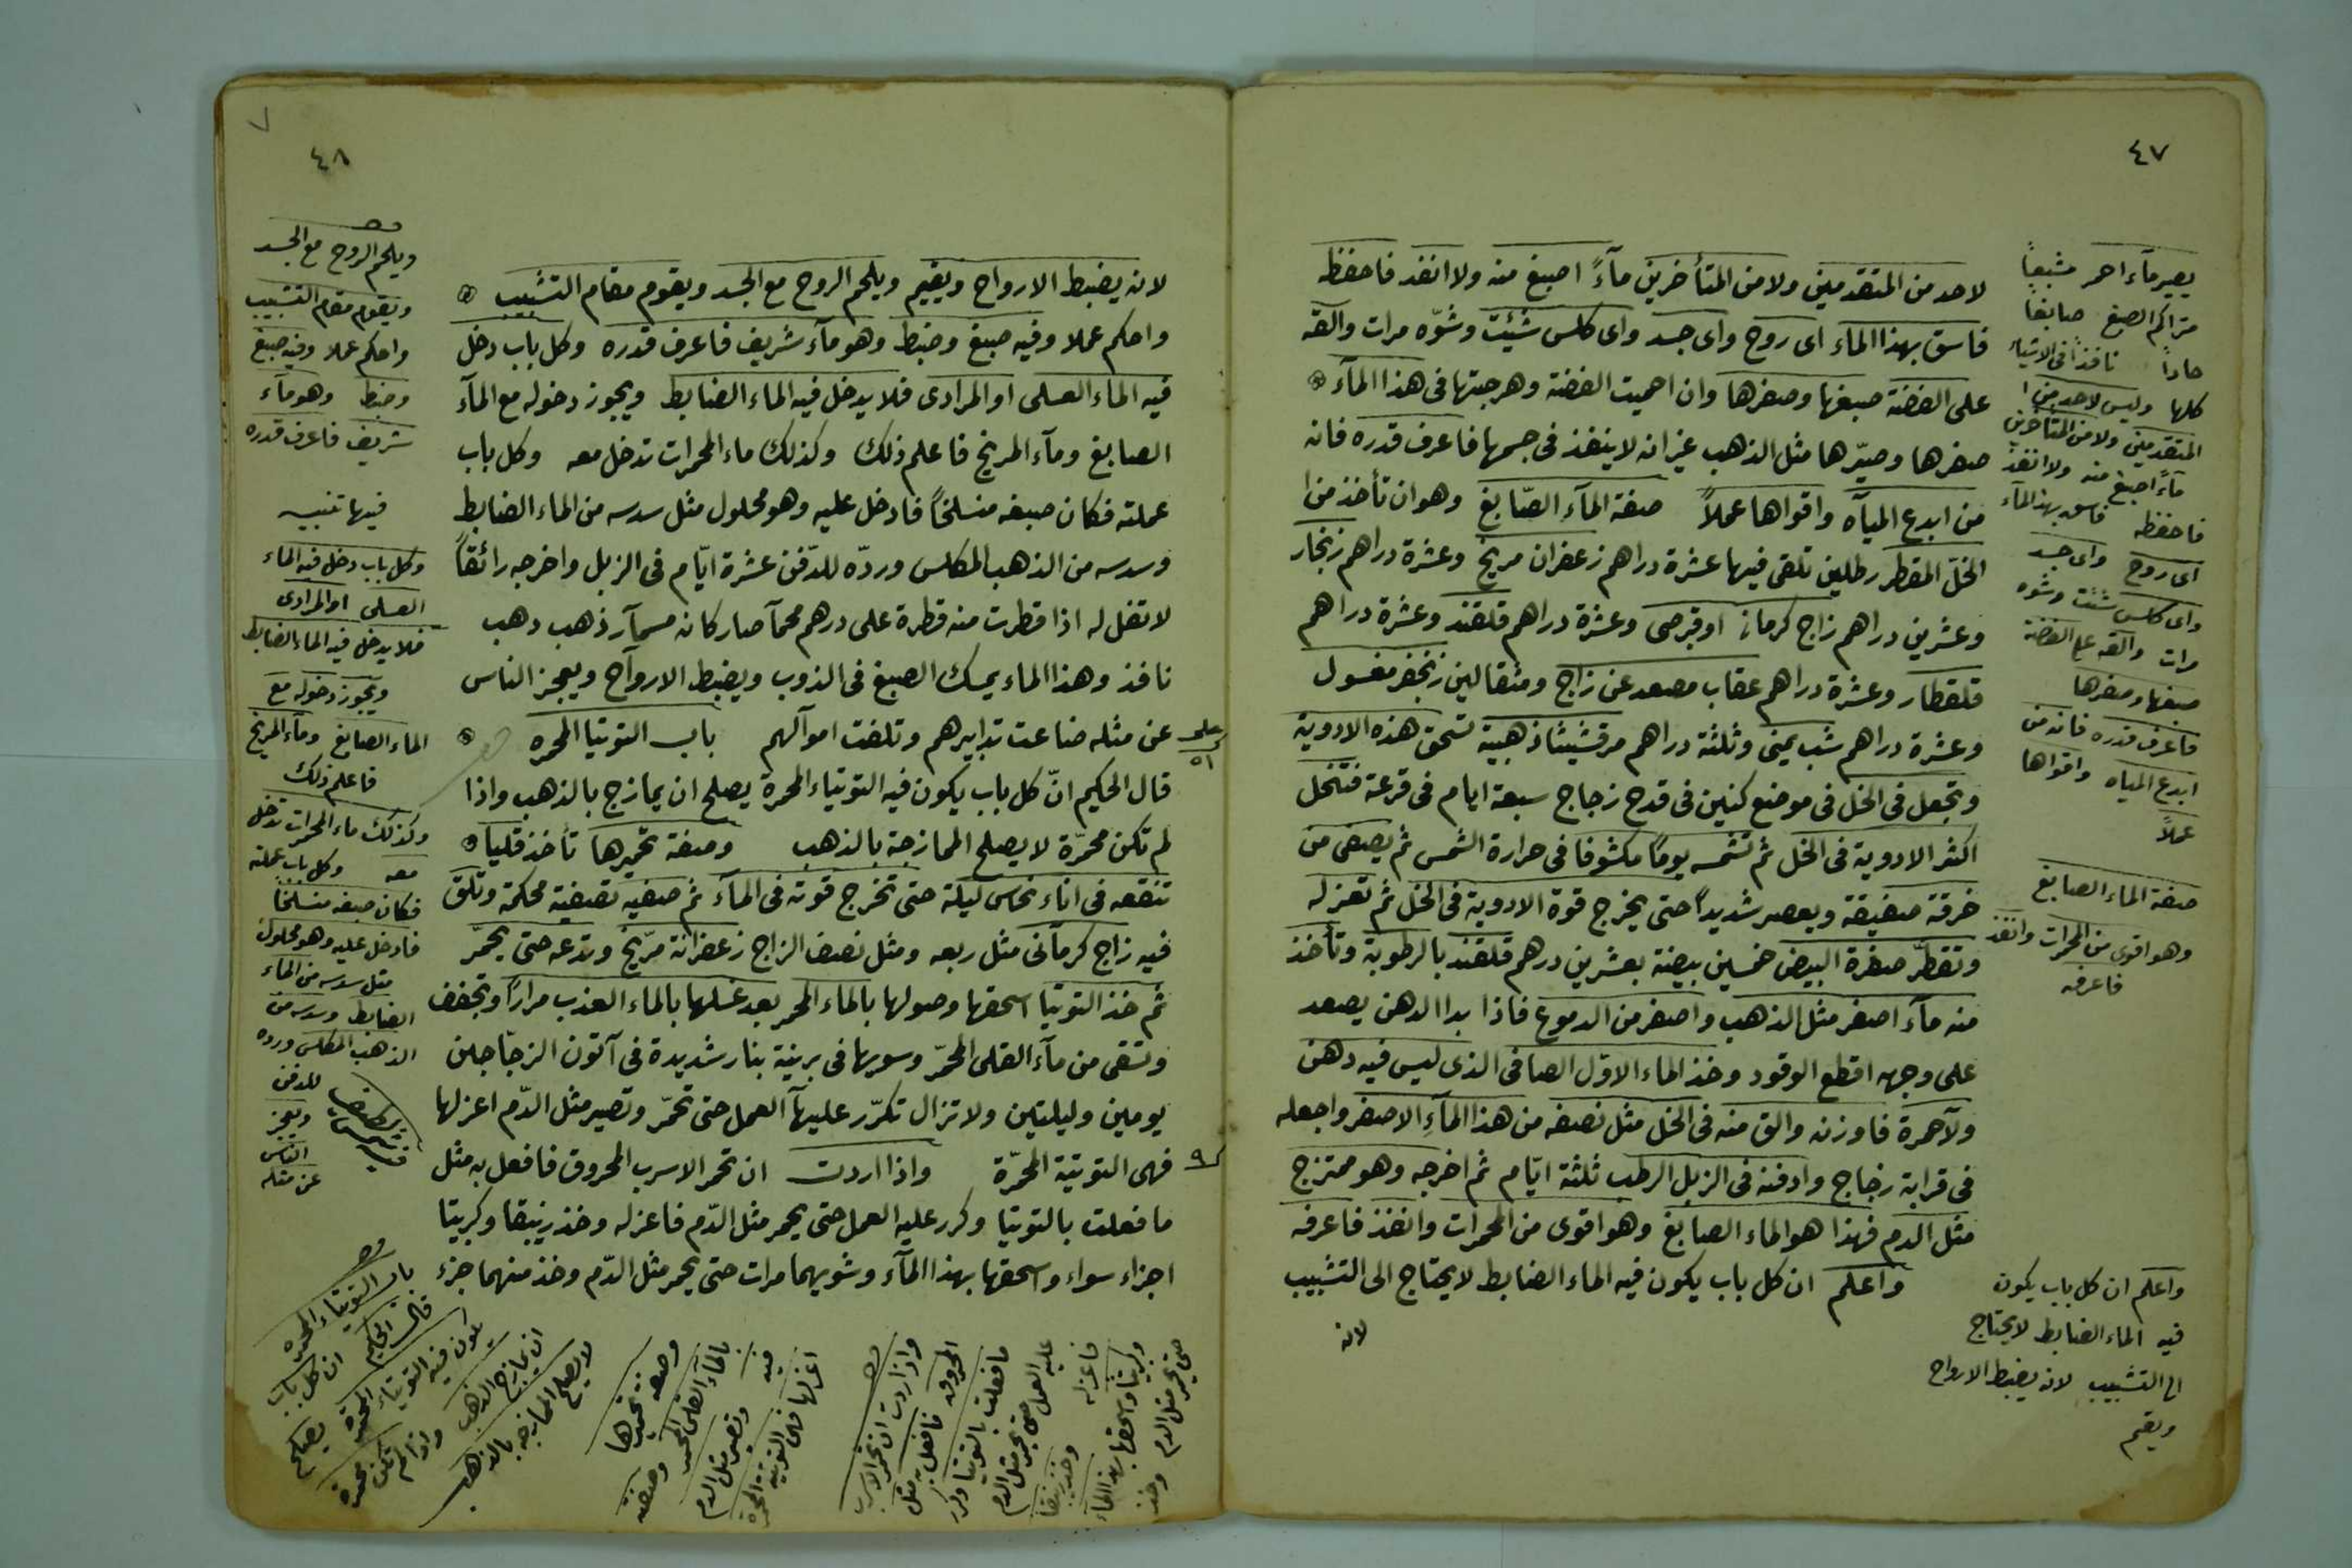 ٤٧
لاحد من المتقدمين ولا من المتأخرين مآءً اصبغ منه ولا انفذ فاحفظه
فاسق بهذا الماء اى روح واى جسد واى كلس شيئت وشوّه مرات والقه
على الفضة صبغها وصفرها وان احميت الفضة وهرجتها فى هذا المآء
صفرها وصيّرها مثل الذهب غير انه لا ينفذ فى جسمها فاعرف قدره فانه
من ابدع المياه واقواها عملاً صفة المآء الصّابغ وهو ان تأخذ من ا
الخلّ المقطر رطلين تلقى فيها عشرة دراهم زعفران مريخ وعشرة دراهم زنجار
وعشرين دراهم زاج كرمانى او قبرصى وعشرة دراهم قلقند وعشرة دراهم
قلقطار وعشرة دراهم عقاب مصعد عن زاج ومثقالين زنجفر مغسول
وعشرة دراهم شب يمنى وثلثة دراهم مرقشيثا ذهبية تسحق هذه الادوية
وتجعل فى الخل فى موضع كنين فى قدح زجاج سبعة ايام فى قرعة فتنحل
اكثر الادوية فى الخل ثم تشمسه يومًا مكشوفا فى حرارة الشمس ثم يصفى من
خرقة صفيقة ويعصر شديدًا حتى يخرج قوة الادوية فى الخل ثم تعزله
وتقطّر صفرة البيض خمسين بيضة بعشرين درهم قلقند بالرطوبة وتأخذ
منه مآء اصفر مثل الذهب واصفر من الدموع فاذا بدا الدهن يصعد
على وجهه اقطع الوقود وخذ الماء الاوّل الصافى الذى ليس فيه دهن
ولا حمرة فاوزنه والق منه فى الخل مثل نصفه من هذا المآءِ الاصفر واجعله
فى قرابة زجاج وادفنه فى الزبل الرطب ثلثة ايّام ثم اخرجه وهو ممتزج
مثل الدم فهذا هو الماء الصابغ وهو اقوى من المحمرات وانفذ فاعرفه
واعلم ان كل باب يكون فيه الماء الضابط لا يحتاج الى التشبيب
لانه
يصير مآء احمر مشبعاً
متراكم الصبغ صابغا
حاداً نافذاً فى الاشياء
كلها وليس لاحد من ا
المتقدمين ولا من المتأخرين
مآءً اصبغ منه ولا انفذ
فاحفظه فاسق بهذا المآء
اى روح واى جسد
واى كلس شئت وشوه
مرات والقه على الفضة
صبغها وصفرها
فاعرف قدره فانه من
ابدع المياه واقواها
عملاً
صفة الماء الصابغ
وهو اقوى من المحمرات وانفذ
فاعرفه
واعلم ان كل باب يكون
فيه الماء الضابط لا يحتاج
الى التشبيب لانه يضبط الارواح
ويقيم
٤٨
لانه يضبط الارواح ويقيم ويلحم الروح مع الجسد ويقوم مقام التشبيب
واحكم عملا وفيه صبغ وضبط وهو مآء شريف فاعرف قدره وكل باب دخل
فيه الماء العسلى او المرادى فلا يدخل فيه الماء الضابط ويجوز دخوله مع المآء
الصابغ ومآء المريخ فاعلم ذلك وكذلك ماء المحمرات تدخل معه وكل باب
عملته فكان صبغه منسلخاً فادخل عليه وهو محلول مثل سدسه من الماء الضابط
وسدسه من الذهب المكلس وردّه للدّفن عشرة ايّام فى الزبل واخرجه رائقاً
لا تفل له اذا قطرت منه قطرة على درهم محمآ صار كانه مسمآر ذهب دهب
نافذ وهذا الماء يمسك الصبغ فى الذوب ويضبط الارواح ويعجز الناس
عن مثله ضاعت تدابيرهم وتلفت اموالهم باب التوتيا المحمره
قال الحكيم انّ كل باب يكون فيه التوتياء المحمرة يصلح ان يمازج بالذهب واذا
لم تكن محمرّة لا يصلح الممازجة بالذهب وصفة تحميرها تأخذ قليا
تنقعه فى اناء نحاس ليلة حتى تخرج قوته فى المآء ثم صفيه تصفية محكمة وتلق
فيه زاج كرمآنى مثل ربعه ومثل نصف الزاج زعفرانة مرّيخ وتدعه حتى يحمّر
ثم خذ التوتيا اسحقها وصولها بالماء المحمر بعد غسلها بالماء العذب مراراً وتجفف
وتسقى من مآء القلى المحمّر وسويها فى برنية بنار شديدة فى آتون الزجّاجين
يومين وليلتين ولا تزال تكرّر عليهآ العمل حتى تحمّر وتصير مثل الدّم اعزلها
فهى التوتية المحمّرة واذا اردت ان تحمر الاسرب المحروق فافعل به مثل
ما فعلت بالتوتيا وكرر عليه العمل حتى يحمر مثل الدّم فاعزله وخذ زيبقا وكبريتا
اجزاء سواء واسحقها بهذا المآء وشويهما مرات حتى يحمر مثل الدّم وخذ منهما جزء
ويلحم الروح مع الجسد
ويقوم مقام التشبيب
واحكم عملا وفيه صبغ
وضبط وهو مآء
شريف فاعرف قدره
فيها تنبيه
وكل باب دخل فيه الماء
العسلى او المرادى
فلا يدخل فيه الماء الضابط
ويجوز دخوله مع
الماء الصابغ ومآء المريخ
فاعلم ذلك
وكذلك ماء المحمرات تدخل
معه وكل باب عملته
فكان صبغه منسلخاً
فادخل عليه وهو محلول
مثل سدسه من الماء
الضابط وسدسه من
الذهب المكلس ورده
للدفن
ويعجز
الناس
عن مثله
باب التوتياء المحمره
قال الحكيم ان كل باب
يكون فيه التوتياء المحمرة يصلح
ان يمازج الذهب واذا لم تكن محمرة
لا يصلح الممازجه بالذهب
وصفة تحميرها وصفة
بالمآء القلى المحمر
فيه وتصير مثل الدم
اعزلها فهى التوتيه المحمرة
واذا اردت ان تحمر الاسرب
المحروق فافعل به مثل
ما فعلت بالتوتيا وكرر
عليه العمل حتى يحمر مثل الدم
فاعزله وخذ زيبقا
وكبريتا واسحقها بهذا المآء
حتى يحمر مثل الدم وخذ